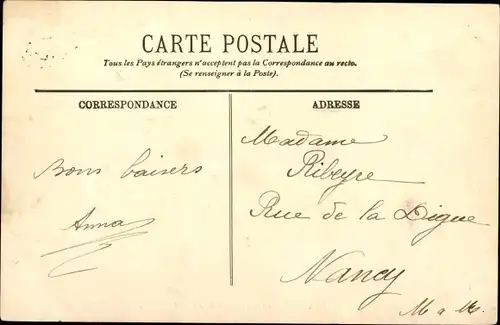 CARTE POSTALE
Tous les Pays étrangers n'acceptent pas la Correspondance au recto.
(Se renseigner à la Poste).
CORRESPONDANCE
ADRESSE
Bons baisers
Anna
Madame
Ribeyre
Rue de la Digue
Nancy
M & M.